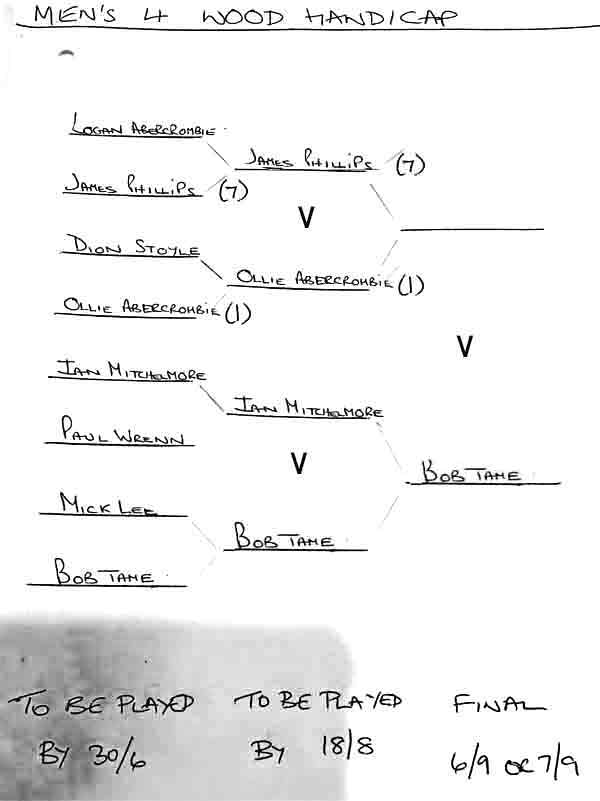 MEN'S 4 WOOD HANDICAP
LOGAN ABERCROMBIE
JAMES PHILLIPS (7)
JAMES PHILLIPS (7)
V
DION STOYLE
OLLIE ABERCROMBIE (1)
OLLIE ABERCROMBIE (1)
V
IAN MITCHELMORE
IAN MITCHELMORE
PAUL WRENN
V
BOB TAME
MICK LEE
BOB TAME
BOB TAME
TO BE PLAYED BY 30/6
TO BE PLAYED BY 18/8
FINAL 6/9 OR 7/9